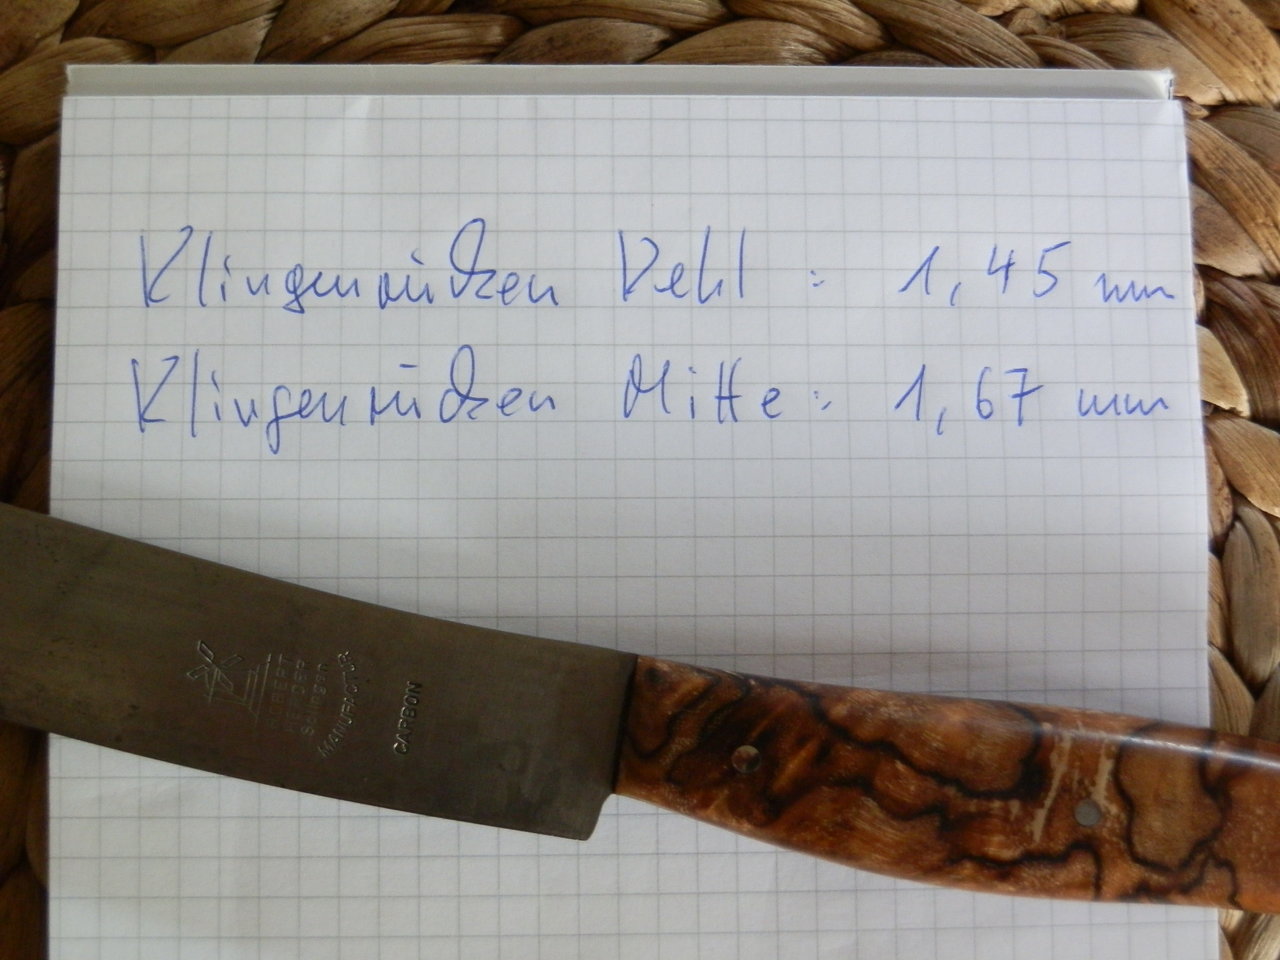 Klingenrücken Kehl : 1,45 mm
Klingenrücken Mitte : 1,67 mm
ROBERT
HERDER
Solingen
MANUFACTUR
CARBON